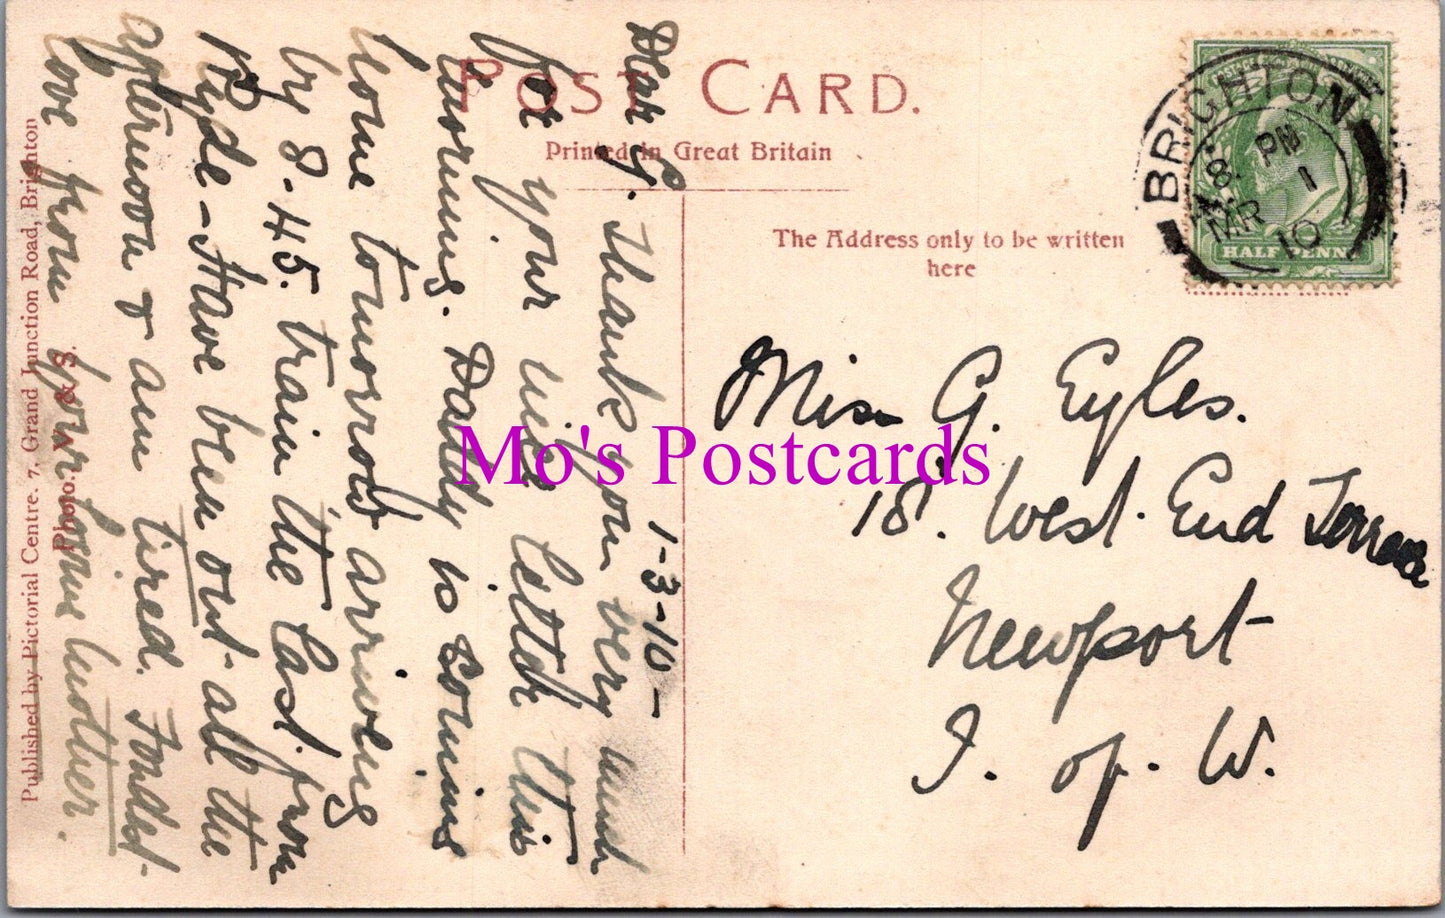 POST CARD.
Printed in Great Britain
The Address only to be written
here
BRIGHTON
8. PM
MR 1
10
HALF PENNY
Miss G. Eyles.
18. West. End Terrace
Newport
I. of. W.
1-3-10-
Dear G. Thank you very much
for your nice letter this
morning. Daddy is coming
home tomorrow arriving
by 8-45. train the last from
Ryde - Have been out all the
afternoon & am tired. Fondest
love from your loving Mother.
Photo: V. & S.
Published by Pictorial Centre. 7, Grand Junction Road, Brighton
Mo's Postcards